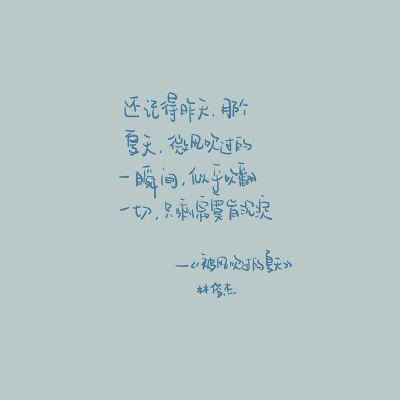 还记得昨天,那个
夏天,微风吹过的
一瞬间,似乎吹翻
一切,只剩寂寞肯沉淀
—《被风吹过的夏天》
林俊杰